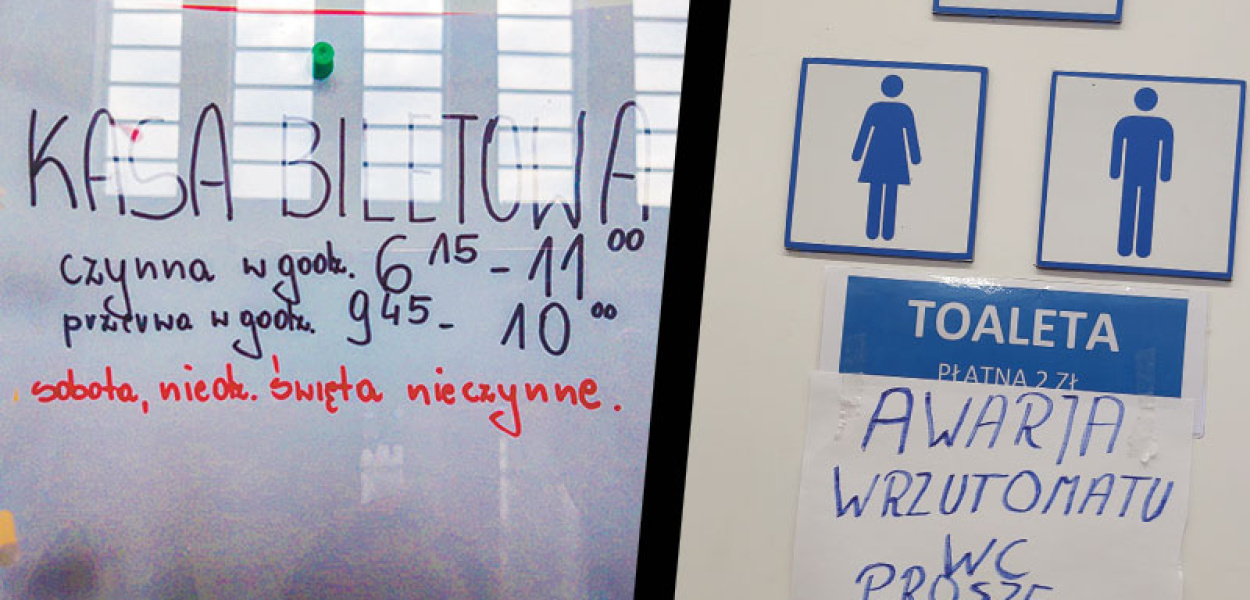 KASA BILETOWA
czynna w godz. 6 15 - 11 00
przerwa w godz. 9 45 - 10 00
sobota, niedz. święta nieczynne.
TOALETA
PŁATNA 2 ZŁ
AWARJA
WRZUTOMATU
WC
PROSZĘ